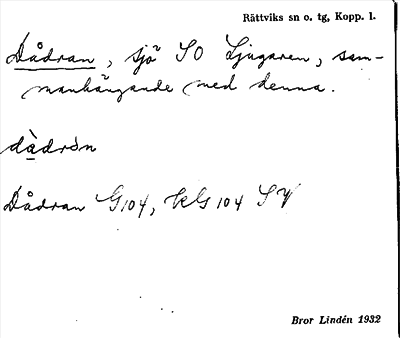 Rättviks sn o. tg, Kopp. l.
Dådran, sjö SO Ljugaren, sam-
manhängande med denna.
dàdròn
Dådran G104, KG 104 SV
Bror Lindén 1932